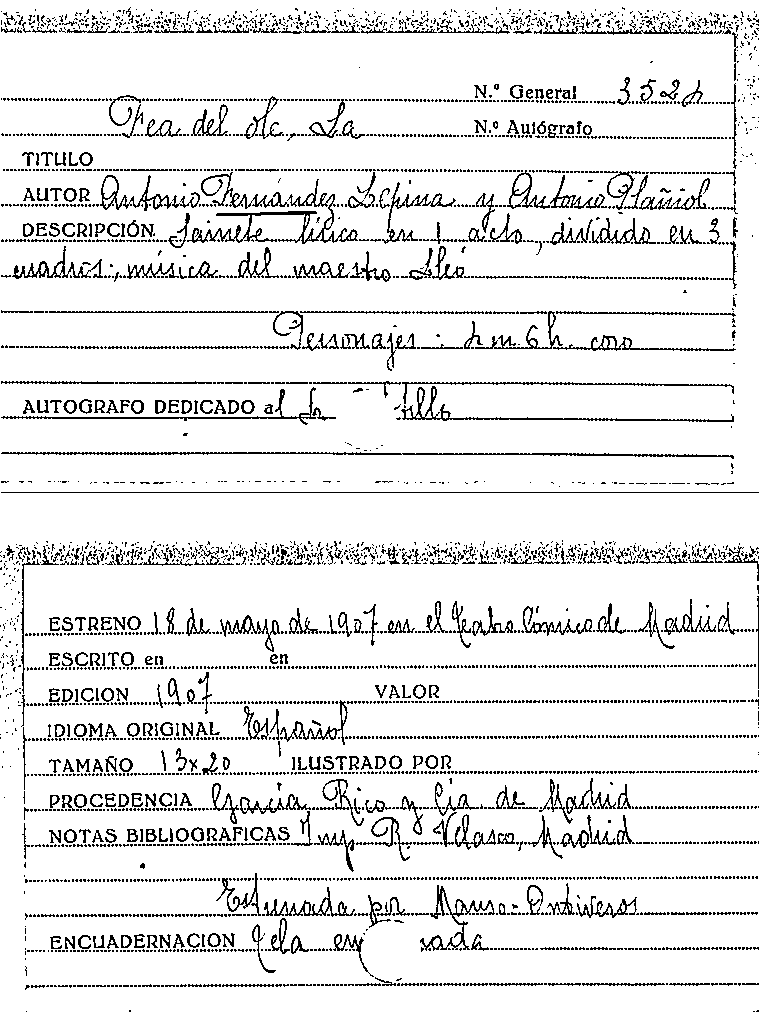 N.º General 3524
Fea del ole, La N.º Autógrafo
TITULO
AUTOR Antonio Fernández Lepina y Antonio Plañiol
DESCRIPCIÓN Sainete lírico en 1 acto, dividido en 3
cuadros, música del maestro Lleó
Personajes: 4 m 6 h. coro
AUTOGRAFO DEDICADO al
ESTRENO 18 de mayo de 1907 en el Teatro Cómico de Madrid
ESCRITO en en
EDICION 1907 VALOR
IDIOMA ORIGINAL Español
TAMAÑO 13x20 ILUSTRADO POR
PROCEDENCIA García Rico y Cía. de Madrid
NOTAS BIBLIOGRAFICAS Imp. R. Velasco, Madrid
Estrenada por Manso-Ontiveros
ENCUADERNACION Tela